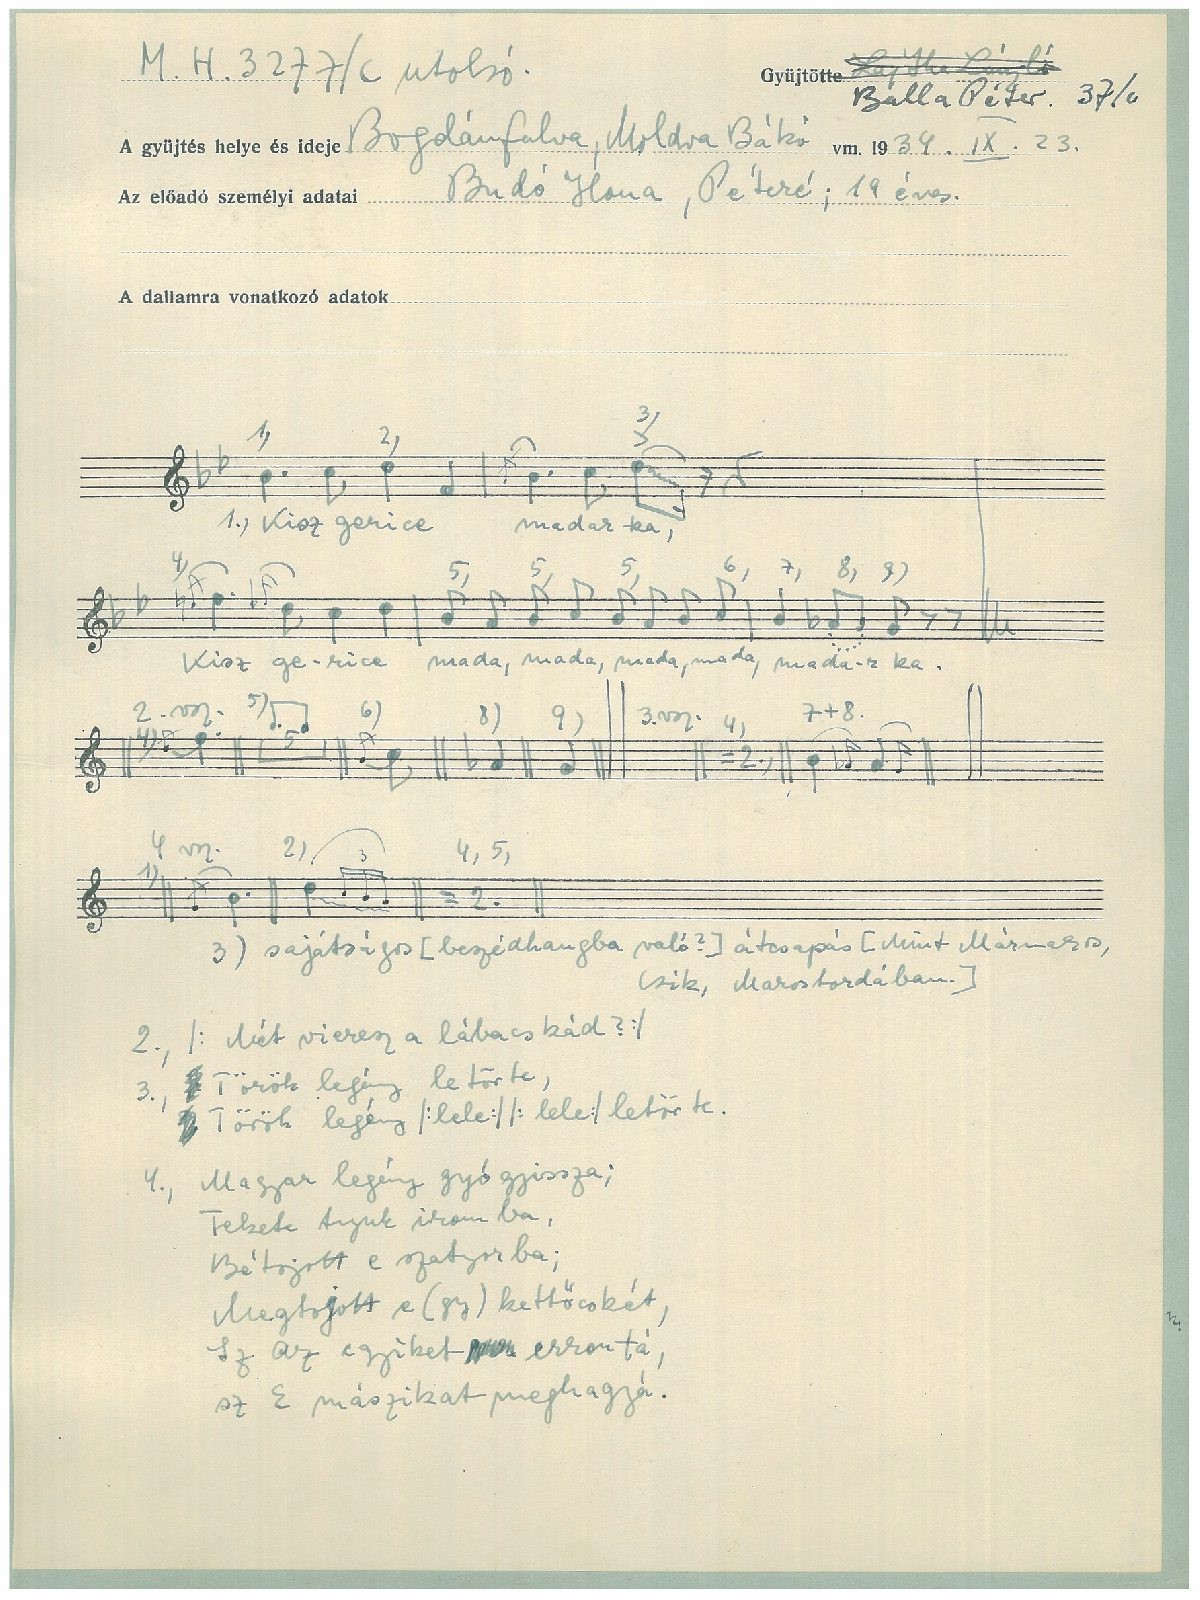 M. H. 3277/c utolsó.
Gyűjtötte Lajtha László
Balla Péter. 37/a
A gyűjtés helye és ideje Bogdánfalva, Moldva Bákó vm. 1934. IX. 23.
Az előadó személyi adatai Budó Ilona, Péteré; 19 éves.
A dallamra vonatkozó adatok
1, 2, 3,
1., Kisz gerice madar-ka,
4, 5, 5, 5, 6, 7, 8, 9)
Kisz ge-rice mada, mada, mada, mada, mada-r ka.
2. vsz. 5) 6) 8) 9) 3. vsz. 4, 7+8.
4) 5 =2.,
4 vsz. 2) 3 4, 5,
1) =2.
3) sajátságos [beszédhangba való?] átcsapás [Mint Mármaros,
Csik, Marostordában.]
2., /: Mét vieresz a lábacskád? :/
3., Török legény letörte,
Török legény /:lele:/ /: lele:/ letörte.
4., Magyar legény gyógyissza;
Fekete tyuk iromba,
Bétojott e szatyorba;
Megtojott e (gy) kettőcskét,
Sz az egyiket errontá,
sz E mászikat meghagyá.